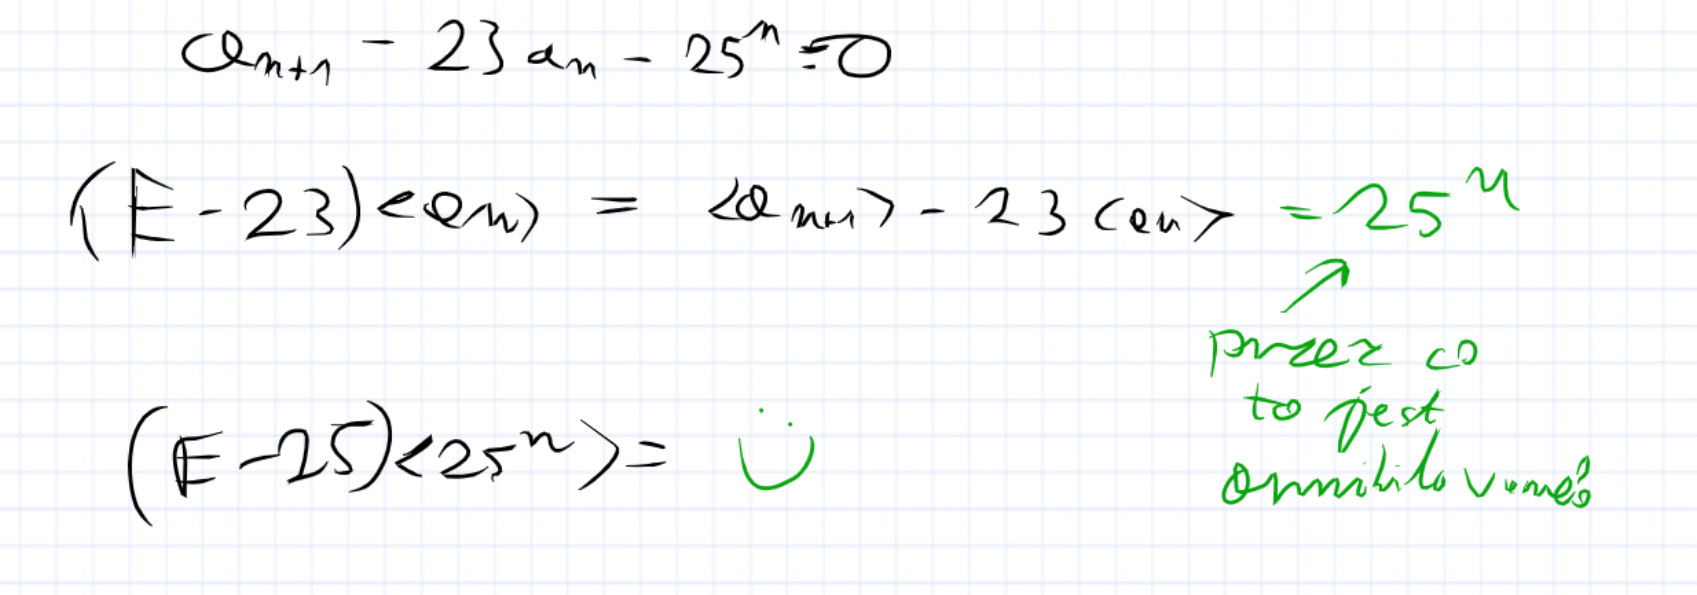 a_{n+1} - 23 a_n - 25^n = 0
(E - 23)<a_n> = <a_{n+1}> - 23 <a_n> = 25^n
przez co
to jest
annihilowane?
(E - 25)<25^n> =